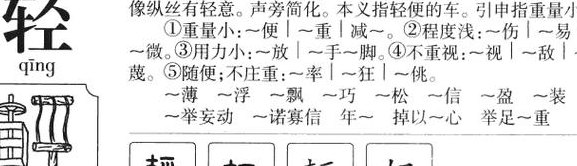 轻
qīng
像纵丝有轻意。声旁简化。本义指轻便的车。引申指重量小
①重量小:～便｜～重｜减～。②程度浅:～伤｜～易
～微。③用力小:～放｜～手～脚。④不重视:～视｜～敌｜
蔑。⑤随便;不庄重:～率｜～狂｜～佻。
～薄 ～浮 ～飘 ～巧 ～松 ～信 ～盈 ～装
～举妄动 ～诺寡信 年～ 掉以～心 举足～重